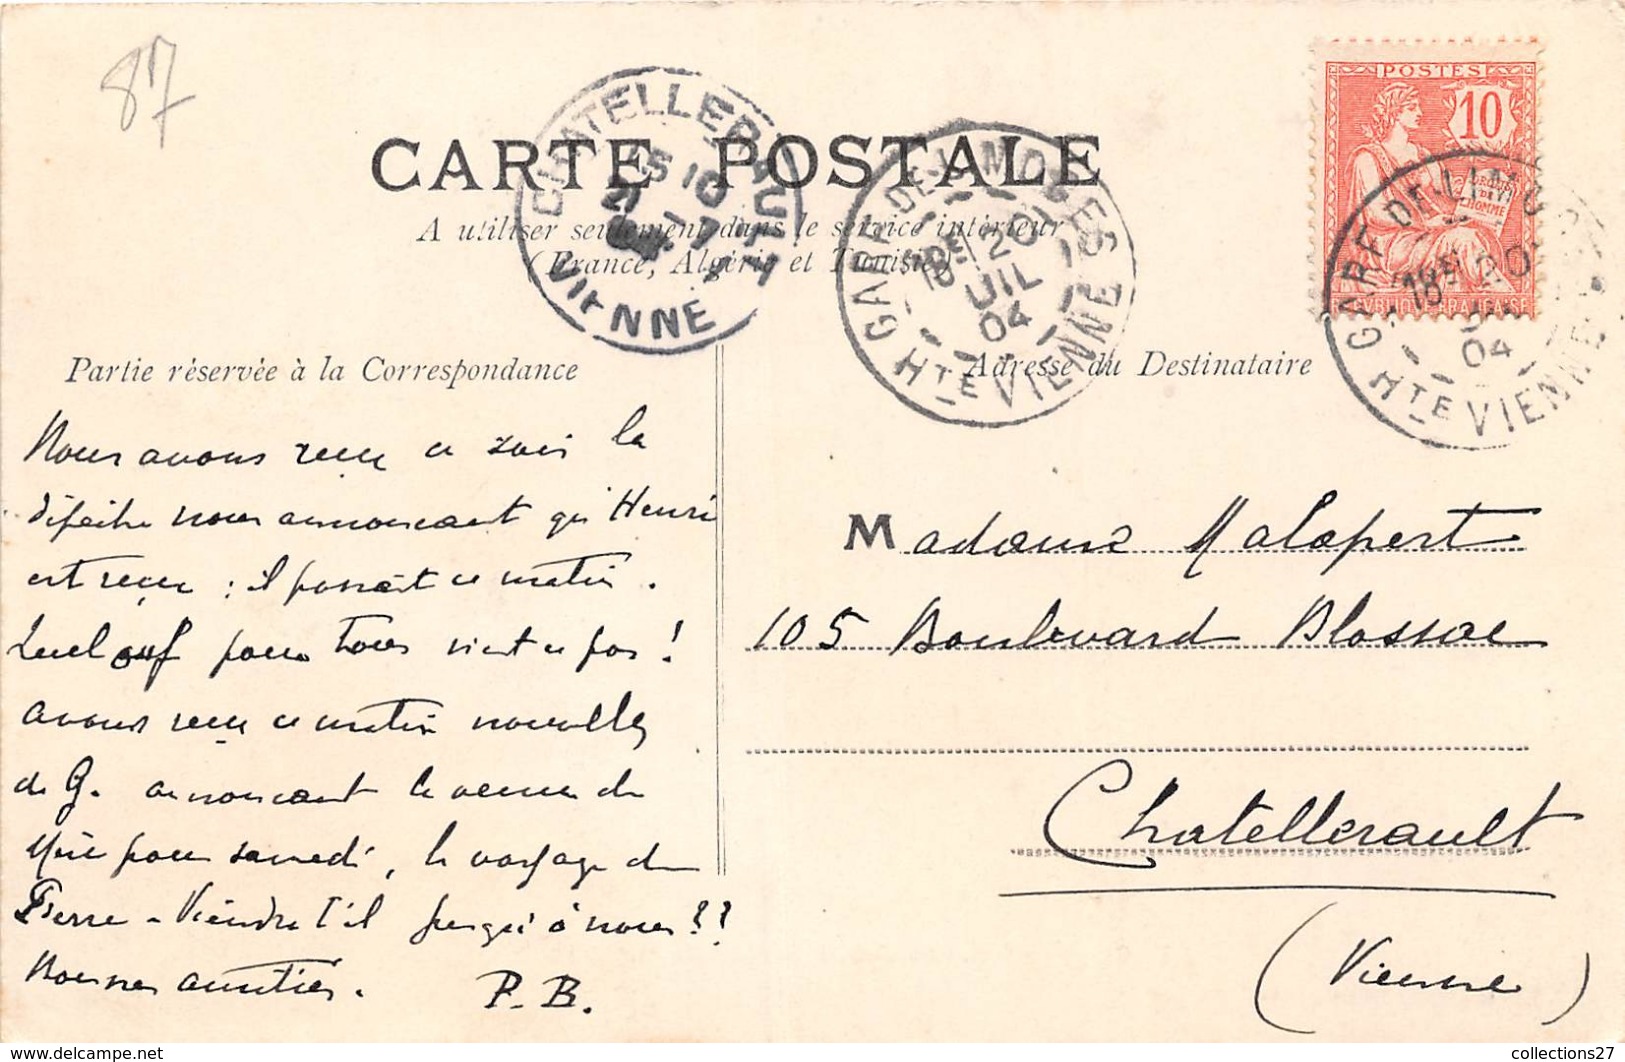 87
POSTES
10
DROITS
DE
HOMME
RÉPUBLIQUE FRANÇAISE
CHATELLERAULT
15 10
21 -7
04
VIENNE
GARE DE LIMOGES
18E 20
JUIL
04
HTE VIENNE
GARE DE LIMOGES
18E 20
04
HTE VIENNE
CARTE POSTALE
A utiliser seulement dans le service intérieur
(France, Algérie et Tunisie)
Partie réservée à la Correspondance
Adresse du Destinataire
Nous avons reçu ce soir la
dépêche nous annonçant qu'Henri
est reçu : il passait ce matin.
Quel ouf pour tous n'est ce pas !
avons reçu ce matin nouvelles
de G. annonçant la venue de
Mère pour samedi, le voyage de
Pierre - Viendra t'il jusqu'à nous ??
Bonnes amitiés.
P. B.
Madame Malapert
105 Boulevard Blossac
Chatellerault
(Vienne)
collections27